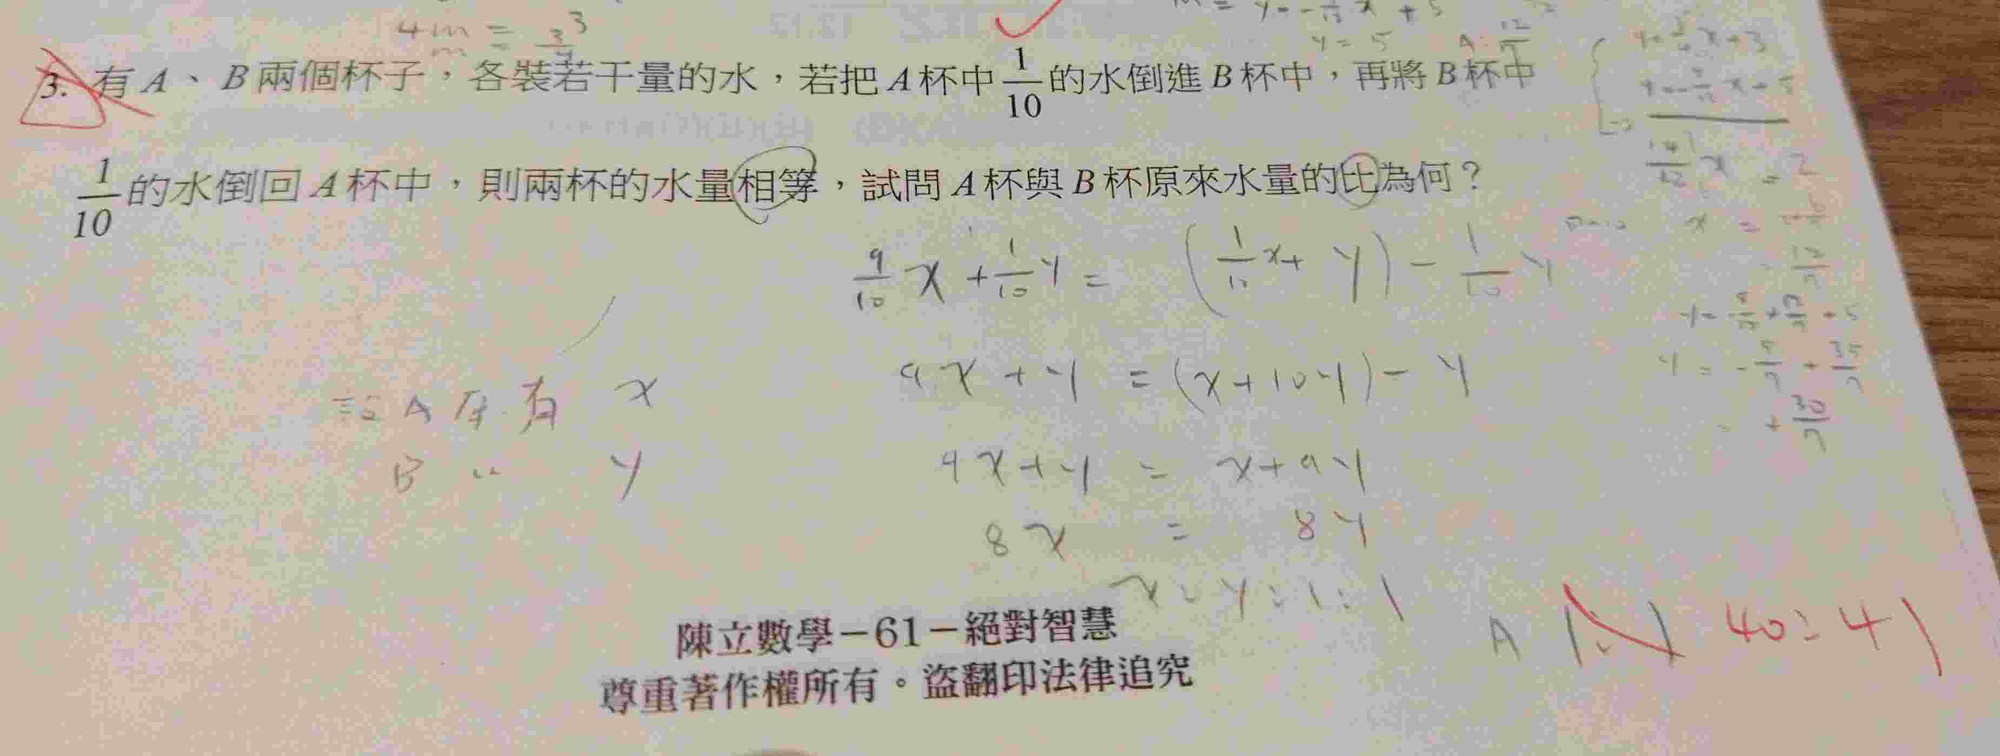 4m = 3
y = 5
3. 有 A、B 兩個杯子，各裝若干量的水，若把 A 杯中 1/10 的水倒進 B 杯中，再將 B 杯中
1/10 的水倒回 A 杯中，則兩杯的水量相等，試問 A 杯與 B 杯原來水量的比為何？
9/10 x + 1/10 y = (1/10 x + y) - 1/10 y
9x + y = (x + 10y) - y
設 A 原有 x
B 〃 y
9x + y = x + 9y
8x = 8y
x : y = 1 : 1
A 1:1 40:41
陳立數學－61－絕對智慧
尊重著作權所有。盜翻印法律追究